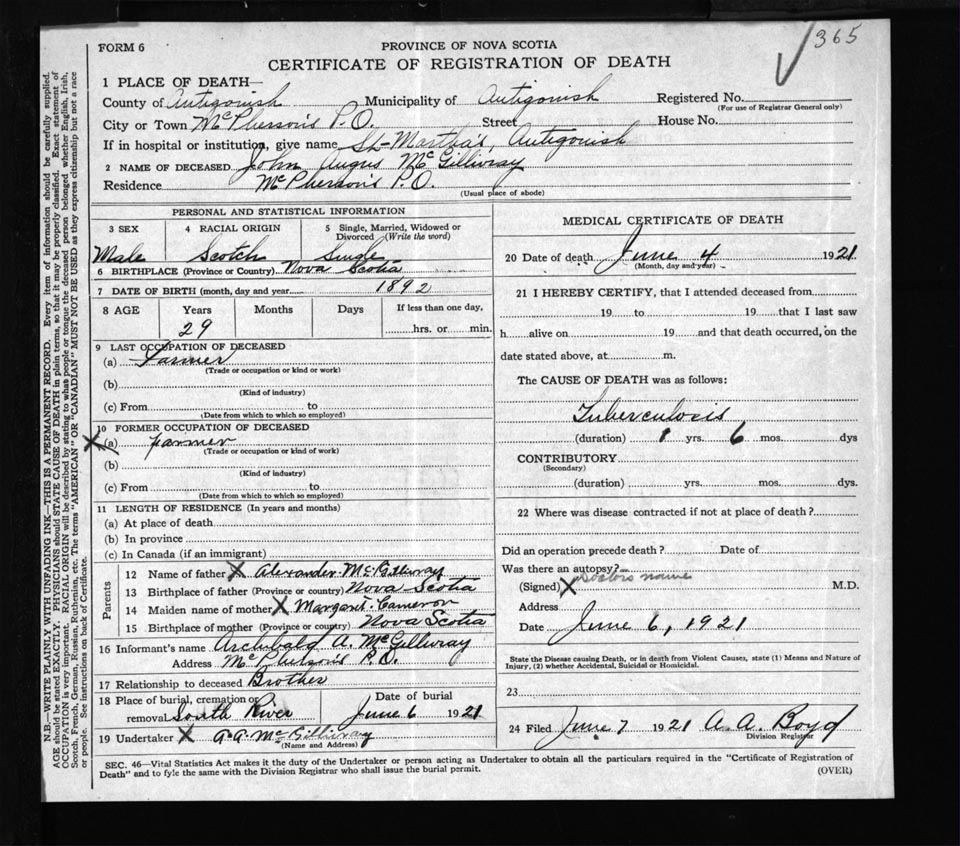 365
FORM 6
PROVINCE OF NOVA SCOTIA
CERTIFICATE OF REGISTRATION OF DEATH
1 PLACE OF DEATH—
County of Antigonish Municipality of Antigonish Registered No.
(For use of Registrar General only)
City or Town McPherson's P.O. Street House No.
If in hospital or institution, give name St-Martha's, Antigonish
2 NAME OF DECEASED John Angus McGillivray
Residence McPherson's P.O.
(Usual place of abode)
PERSONAL AND STATISTICAL INFORMATION
3 SEX 4 RACIAL ORIGIN 5 Single, Married, Widowed or Divorced (Write the word)
Male Scotch Single
6 BIRTHPLACE (Province or Country) Nova Scotia
7 DATE OF BIRTH (month, day and year 1892
8 AGE Years Months Days If less than one day,
29 hrs. or min.
9 LAST OCCUPATION OF DECEASED
(a) Farmer
(Trade or occupation or kind or work)
(b)
(Kind of industry)
(c) From to
(Date from which to which so employed)
10 FORMER OCCUPATION OF DECEASED
X (a) Farmer
(Trade or occupation or kind of work)
(b)
(Kind of industry)
(c) From to
(Date from which to which so employed)
11 LENGTH OF RESIDENCE (In years and months)
(a) At place of death
(b) In province
(c) In Canada (if an immigrant)
Parents
12 Name of father X Alexander McGillivray
13 Birthplace of father (Province or country) Nova Scotia
14 Maiden name of mother X Margaret Cameron
15 Birthplace of mother (Province or country) Nova Scotia
16 Informant's name Archibald A. McGillivray
Address McPherson's P.O.
17 Relationship to deceased Brother
18 Place of burial, cremation or removal South River
Date of burial June 6 1921
19 Undertaker X A. A. McGillivray
(Name and Address)
MEDICAL CERTIFICATE OF DEATH
20 Date of death June 4 1921
(Month, day and year)
21 I HEREBY CERTIFY, that I attended deceased from
19 to 19 that I last saw
h alive on 19 and that death occurred, on the
date stated above, at m.
The CAUSE OF DEATH was as follows:
Tuberculosis
(duration) 1 yrs. 6 mos. dys
CONTRIBUTORY
(Secondary)
(duration) yrs. mos. dys.
22 Where was disease contracted if not at place of death?
Did an operation precede death? Date of
Was there an autopsy?
Doctors name
(Signed) X M.D.
Address
Date June 6, 1921
State the Disease causing Death, or in death from Violent Causes, state (1) Means and Nature of
Injury, (2) whether Accidental, Suicidal or Homicidal.
23
24 Filed June 7 1921 A. A. Boyd
Division Registrar
SEC. 46—Vital Statistics Act makes it the duty of the Undertaker or person acting as Undertaker to obtain all the particulars required in the "Certificate of Registration of
Death" and to fyle the same with the Division Registrar who shall issue the burial permit.
(OVER)
N.B.—WRITE PLAINLY WITH UNFADING INK—THIS IS A PERMANENT RECORD. Every item of information should be carefully supplied.
AGE should be stated EXACTLY. PHYSICIANS should STATE CAUSE OF DEATH in plain terms, so that it may be properly classified. Exact statement of
OCCUPATION is very important. RACIAL ORIGIN will be described by stating to what people or tongue the deceased person belonged whether English, Irish,
Scotch, French, German, Russian, Ruthenian, etc. The terms "AMERICAN" OR "CANADIAN" MUST NOT BE USED as they express citizenship but not a race
or people. See instructions on back of Certificate.